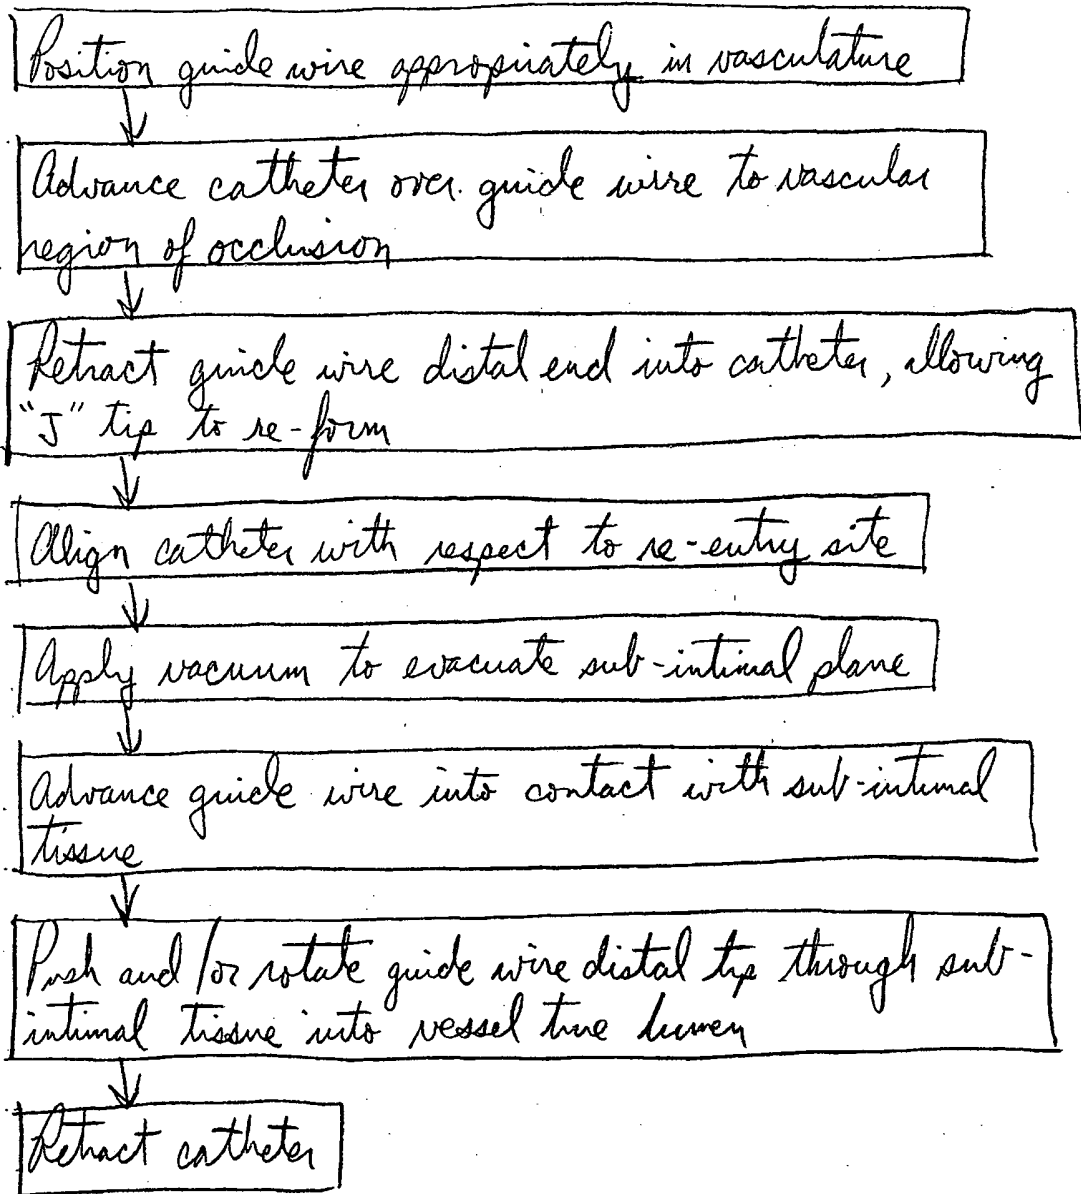 Position guide wire appropriately in vasculature
Advance catheter over guide wire to vascular
region of occlusion
Retract guide wire distal end into catheter, allowing
"J" tip to re-form
Align catheter with respect to re-entry site
Apply vacuum to evacuate sub-intimal plane
Advance guide wire into contact with sub-intimal
tissue
Push and/or rotate guide wire distal tip through sub-
intimal tissue into vessel true lumen
Retract catheter